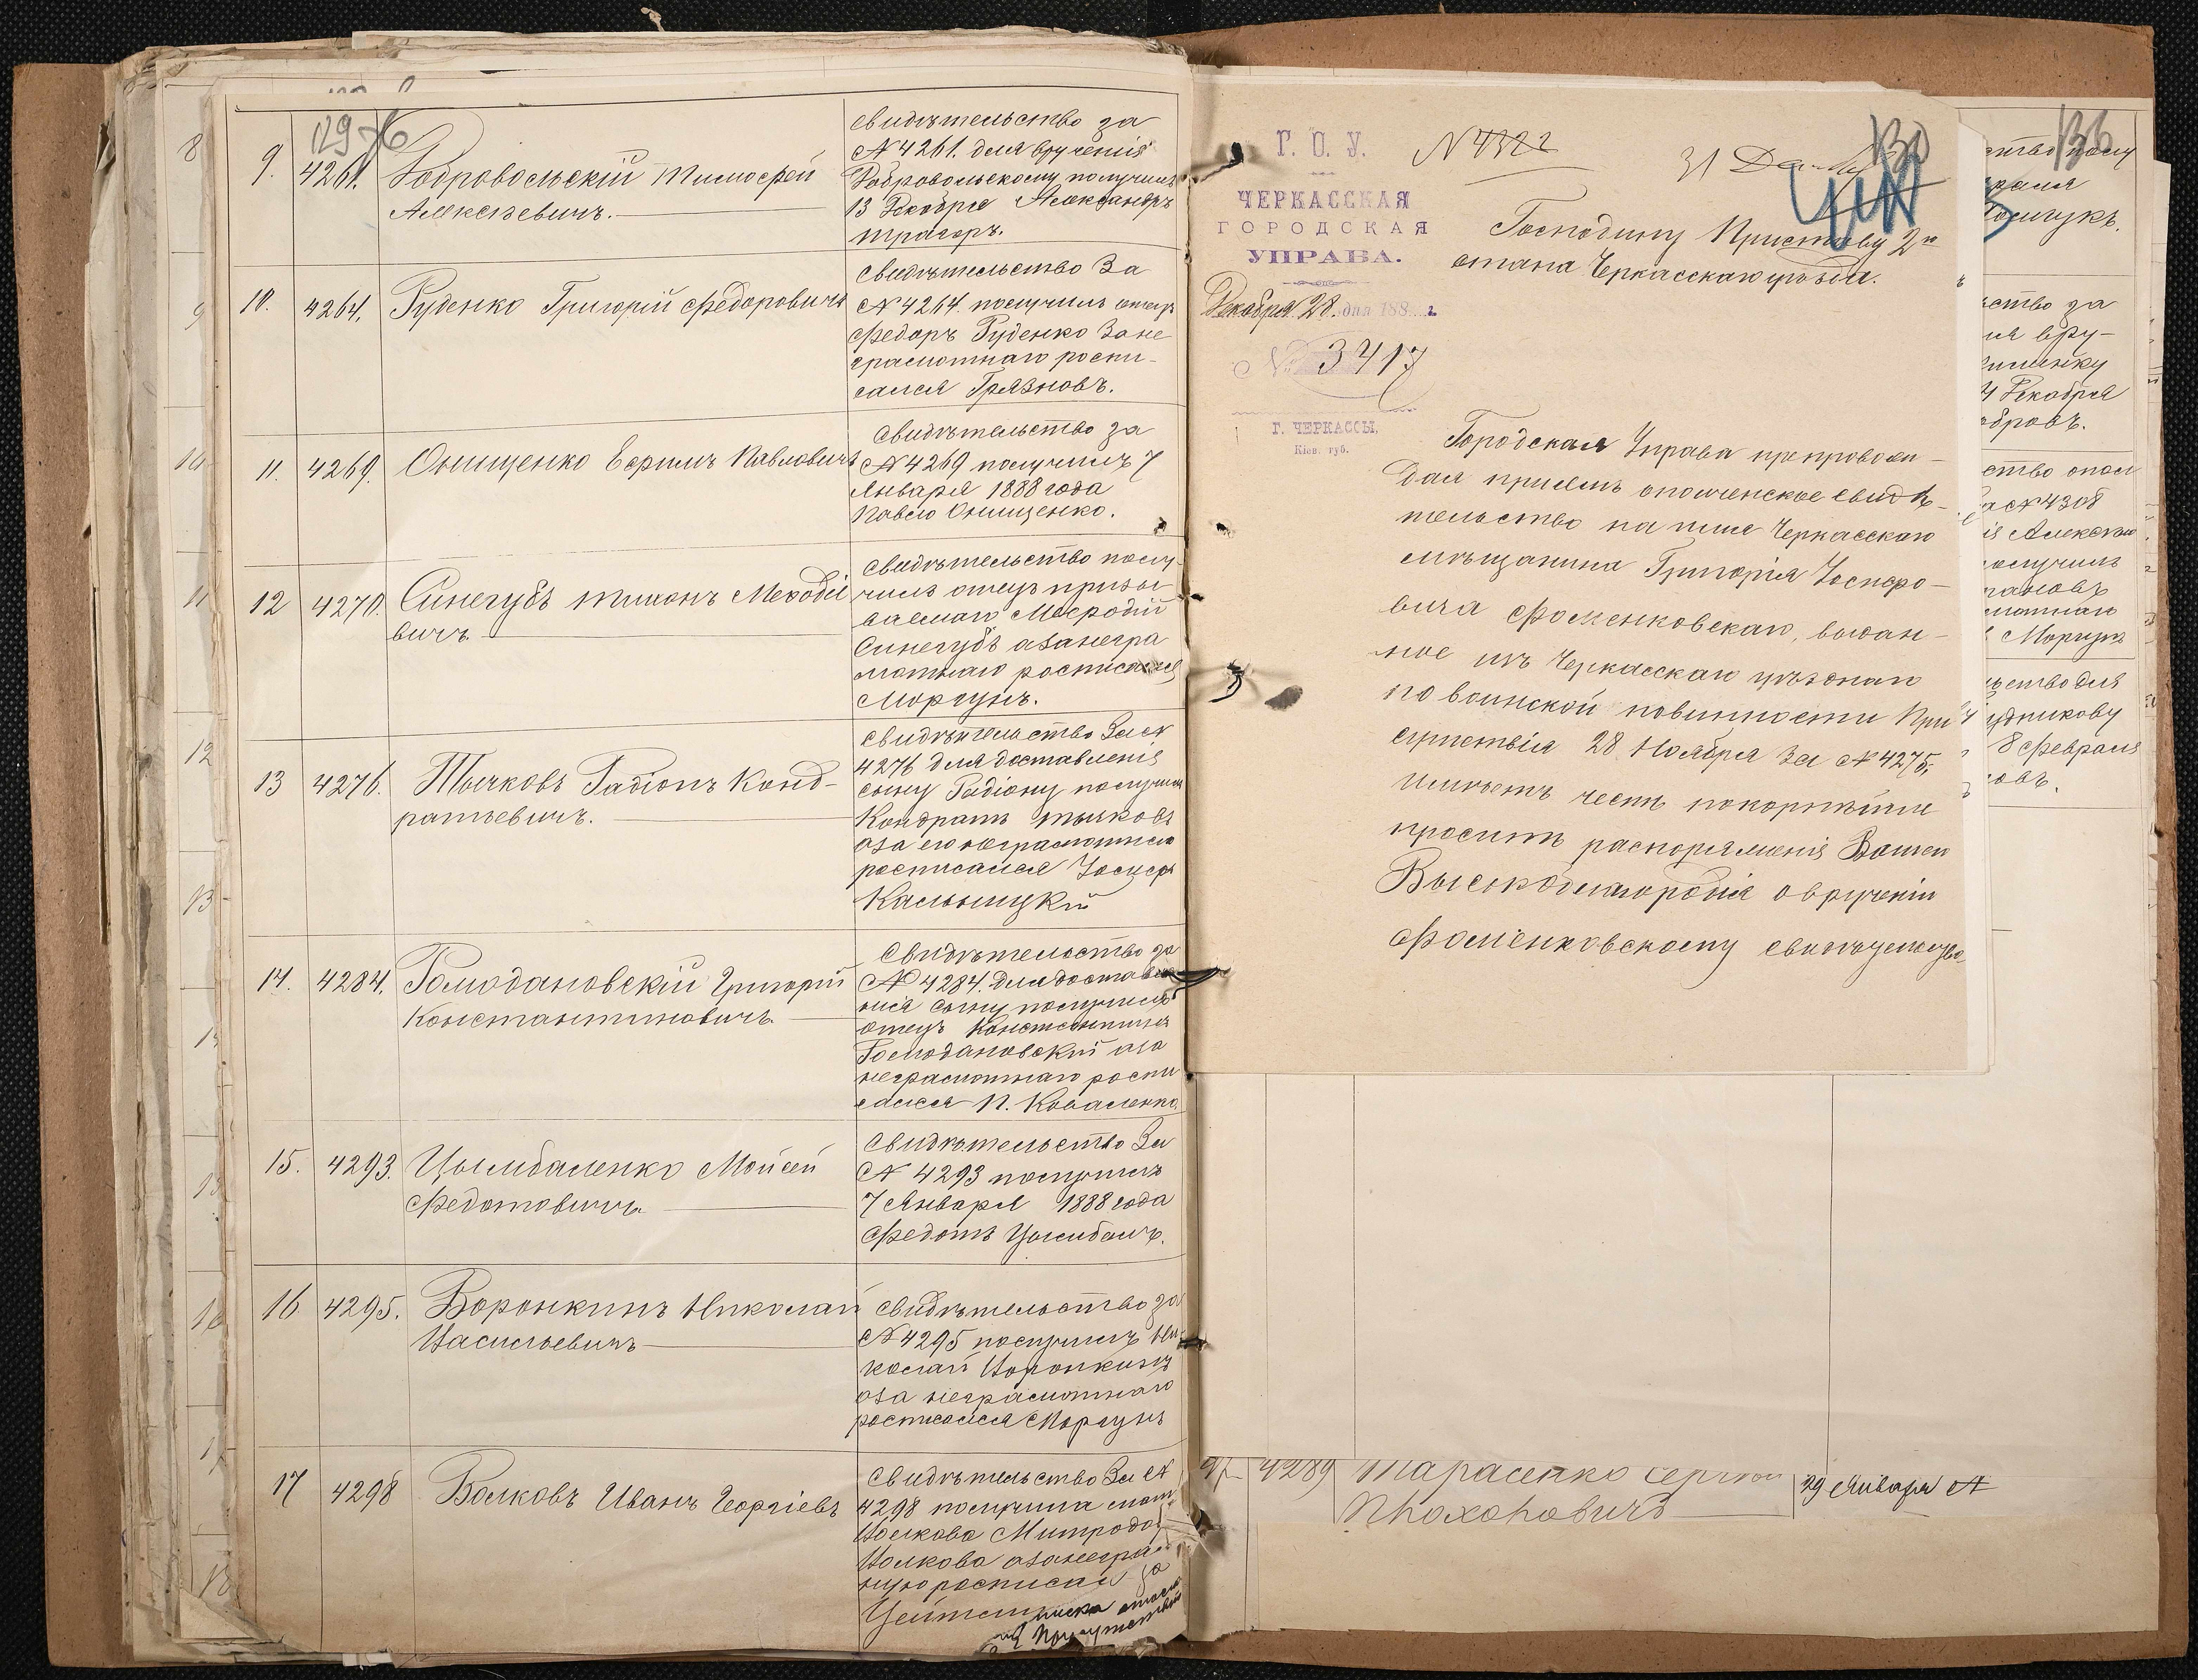 129
9. 4261. Добровольскій Тимофей
Алексѣевичъ.
свидѣтельство за
№ 4261. для врученія
Добровольскому получилъ
13 Декабря Александръ
10. 4264. Руденко Григорій Федоровичъ
свидѣтельство За
№ 4264. получилъ отецъ
Федоръ Руденко За не
грамотнаго роспи-
сался Грязновъ.
11. 4269. Онищенко Ефимъ Павловичъ
свидѣтельство за
№ 4269 получилъ 7
Января 1888 года
Павло Онищенко.
12 4270. Синегубъ Тимонъ Меѳодіе
вичъ
свидѣтельство полу-
чилъ отецъ призы
ваемаго Мефодій
Синегубъ а за негра
мотнаго росписался
Моргунъ.
13 4276. Тычковъ Радіонъ Конд-
ратьевичъ.
свидѣтельство За №
4276 для доставленія
сыну Радіону получилъ
Кондратъ Тычковъ
а за его неграмотнаго
росписался Іосифъ
14. 4284. Гомодановскій Григорій
Константиновичъ
Свидѣтельство за
№ 4284. Для доставле
нія сыну получилъ
отецъ Константинъ
Гомодановскій а за
неграмотнаго роспи
сался П. Коваленко.
15. 4293. Цымбаленко Мойсей
Федотовичъ
Свидѣтельство За
№ 4293 получилъ
7 Января 1888 года
Федотъ Цымбалъ.
16 4295. Воронкинъ Николай
Васильевичъ
свидѣтельство за
№ 4295 получилъ Ни-
колай Воронкинъ
а за неграмотнаго
росписался Моргунъ
17 4298 Волковъ Иванъ Георгіевъ
Свидѣтельство За №
4298 получила мать
Волкова
Волкова а за неграмот
ную росписался за
Г. О. У.
ЧЕРКАССКАЯ
ГОРОДСКАЯ
УПРАВА.
Декабря 28. дня 188 г.
№ 3417
Г. ЧЕРКАССЫ,
Кіев. губ.
N 4322
31 Дек
130
Господину Приставу 2го
стана Черкасскаго уѣзда.
Городская Управа препровож-
дая присемъ ополченское свидѣ-
тельство на имя Черкасскаго
мѣщанина Григорія Іосифо-
вича Фоменковскаго, выдан-
ное изъ Черкасскаго уѣзднаго
по воинской повинности При
сутствія 28 Ноября За № 4275,
Имѣетъ честь покорнѣйше
просить распоряженія Вашего
Высокоблагородія о врученіи
Фоменковскому свидѣтельства
136
ство за
ія вру-
4 Декабря
ство опол
за № 4308
получилъ
Моргунъ
ьство для
8 Февраля
4289 Тарасенко Сергѣй
Прохоровичъ
29 Января